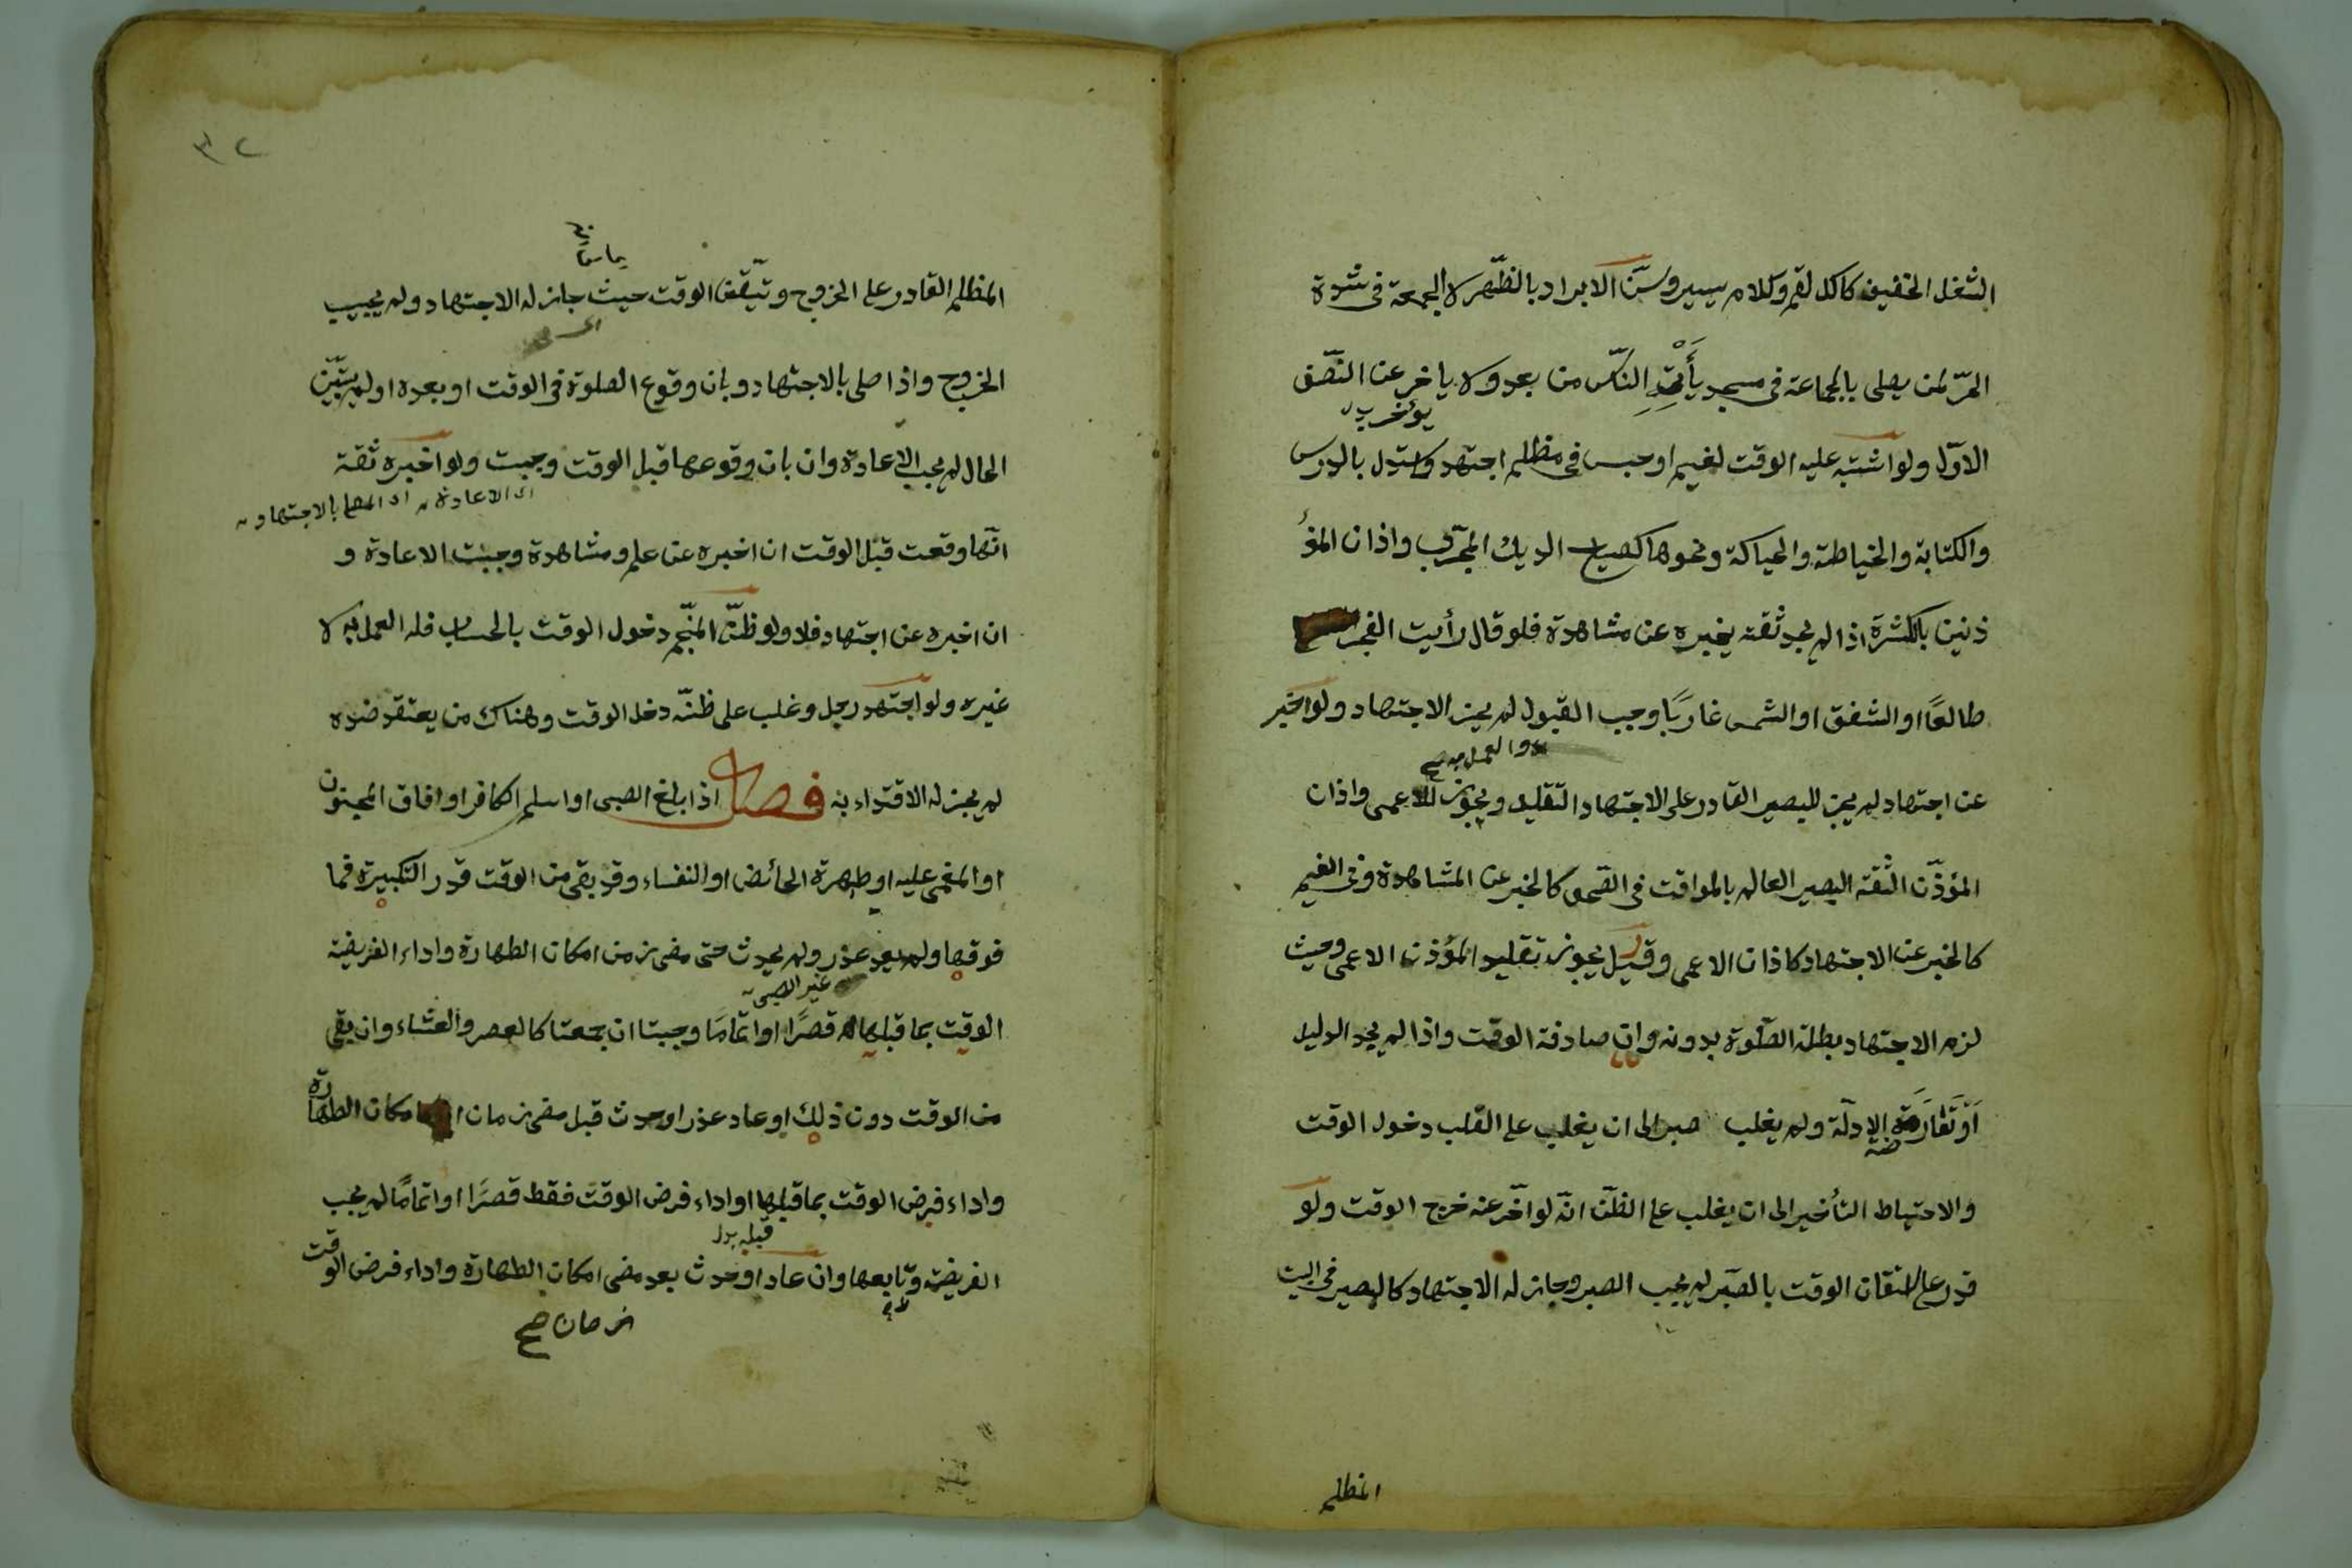 الشغل الخفيف كاكل لقم وكلام يسير وسنّ الابراد بالظّهر لا الجمعة فى شدة
الحرّ لمن يصلى بالجماعة فى مسجد يأتيه النّاس من بعد ولا ياخر عن النّصف
يؤخر
الاوّل ولو اشتبه عليه الوقت لغيم او حبس فى مظلم اجتهد واستدل بالدرس
والكتابة والخياطة والحياكة ونحوها كصياح الديك المجرّب واذان المؤ
ذنين بالكثرة اذا لم يجد ثقة يخبره عن مشاهدة فلو قال رأيت الفجر
طالعًا او الشفق او الشمس غاربًا وجب القبول لم يجز الاجتهاد ولو اخبر
والعمل به صح
عن اجتهاد لم يجز للبصير القادر على الاجتهاد التقليد ويجوز للاعمى واذان
المؤذّن الثقة البصير العالم بالمواقت فى الصّحو كالخبر عن المشاهدة وفى الغيم
كالخبر عن الاجتهاد كاذان الاعمى وقيل يجوز تقليد المؤذن الاعمى وحيث
لزم الاجتهاد بطلة الصّلوة بدونه وان صادفة الوقت واذا لم يجد الدليل
او تعارضة الادلّة ولم يغلب صبر الى ان يغلب على القلب دخول الوقت
والاحتياط التأخير الى ان يغلب على الظنّ انّه لو اخّر عنه خرج الوقت ولو
قدر على اتقان الوقت بالصّبر لم يجب الصبر وجاز له الاجتهاد كالبصير فى البيت
المظلم
٣٢
المظلم القادر على الخروج وتيّقن الوقت حيث جاز له الاجتهاد ولم يجب
الخروج واذا صلى بالاجتهاد وبان وقوع الصلوة فى الوقت او بعده او لم يتبيّن
الحال لم يجب الاعادة وان بان وقوعها قبل الوقت وجبت ولو اخبره ثقة
اى الاعادة اى المصلى بالاجتهاد
انّها وقعت قبل الوقت ان اخبره عن علم ومشاهدة وجبت الاعادة و
ان اخبره عن اجتهاد فلا ولو ظنّ المنجّم دخول الوقت بالحساب فله العمل به لا
غيره ولو اجتهد رجل وغلب على ظنّه دخل الوقت وهناك من يعتقد ضده
لم يجز له الاقتداء به فصل اذا بلغ الصبى او اسلم الكافر او افاق المجنون
او المغمى عليه او طهرة الحائض او النفساء وقد بقى من الوقت قدر التكبيرة فما
فوقها ولم يعد عذر ولم يحدث حتى مضى زمن امكان الطهارة واداء الفريضة
غير الصبى
الوقت بما قبلها قصرًا او اتمامًا وجبتا ان جمعتا كالعصر والعشاء وان بقى
من الوقت دون ذلك او عاد عذر او حدث قبل مضى زمان امكان الطهارة
واداء فرض الوقت بما قبلها او اداء فرض الوقت فقط قصرًا او اتمامًا لم يجب
قبله بدل
الفريضة وتابعها وان عاد او حدث بعد مضى امكان الطهارة واداء فرض الوقت
زمان صح